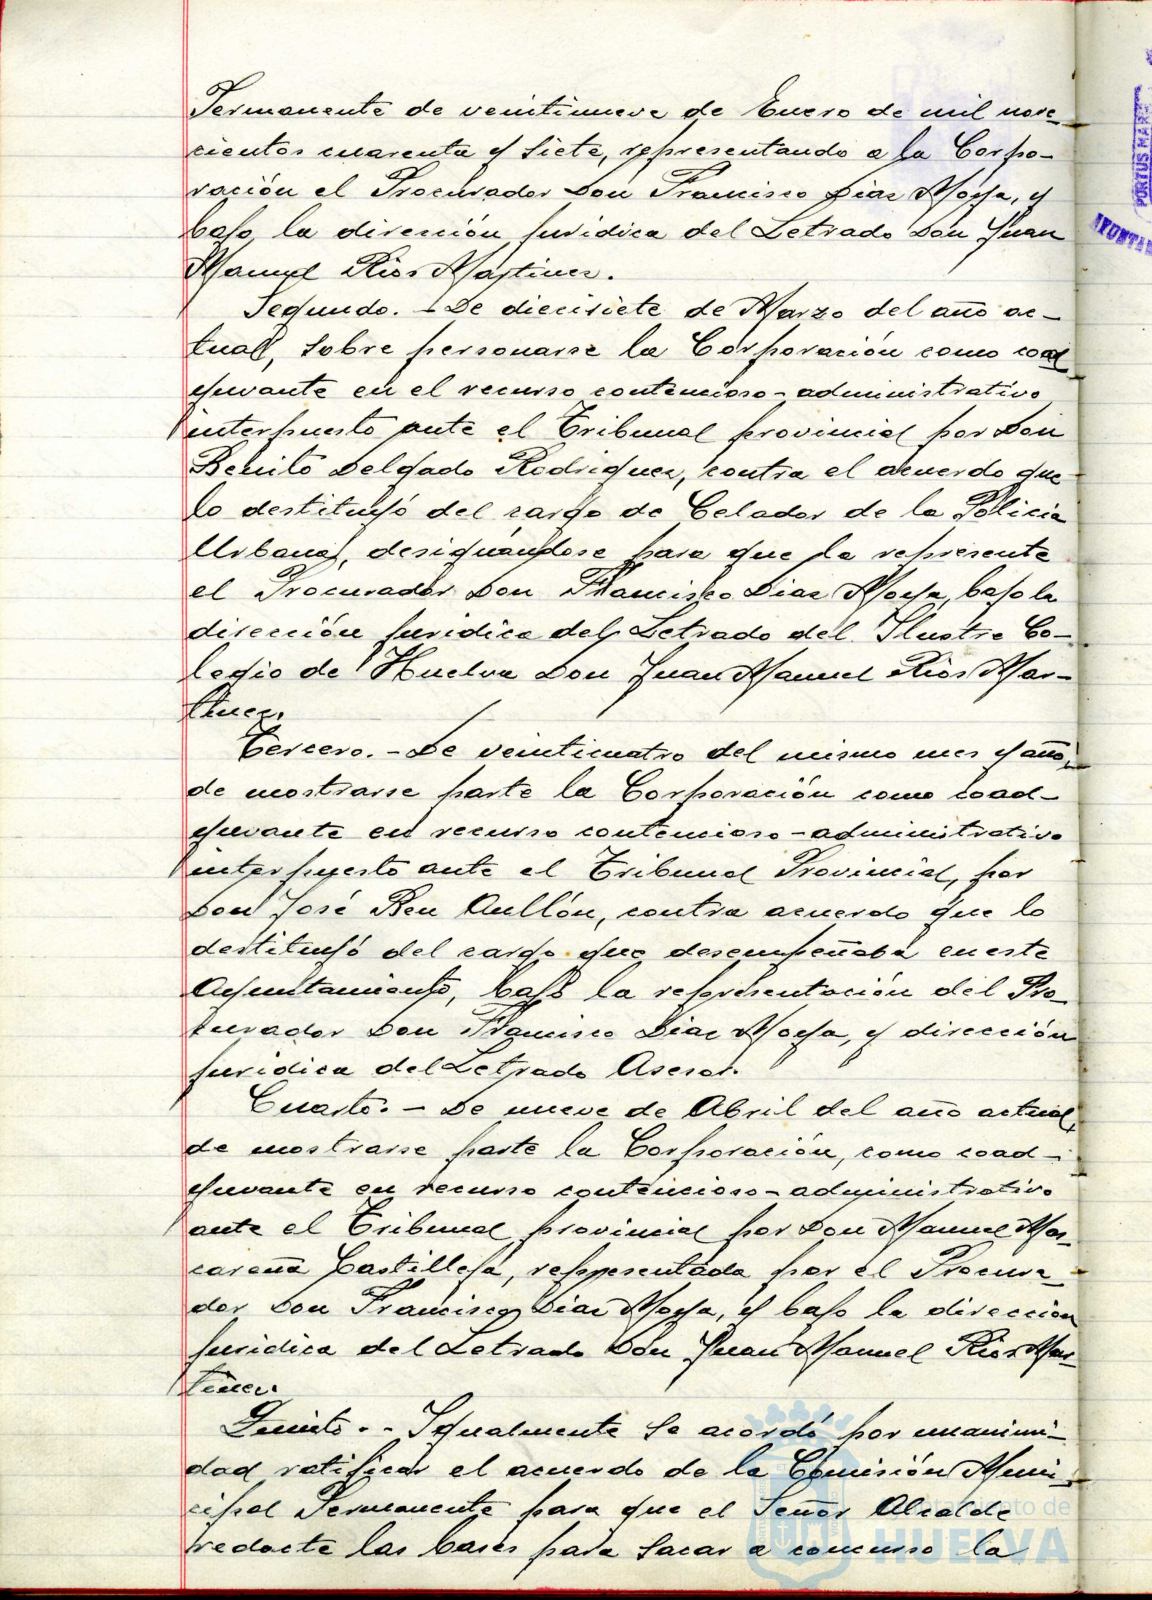 Permanente de veintinueve de Enero de mil nove-
cientos cuarenta y siete, representando a la Corpo-
ración el Procurador Don Francisco Díaz Moya, y
bajo la dirección jurídica del Letrado Don Juan
Manuel Ríos Martínez.
Segundo. - De diecisiete de Marzo del año ac-
tual, sobre personarse la Corporación como coad
yuvante en el recurso contencioso-administrativo
interpuesto ante el Tribunal provincial por Don
Benito Delgado Rodriguez, contra el acuerdo que
lo destituyó del cargo de Celador de la Policía
Urbana, designándose para que la represente
el Procurador Don Francisco Díaz Moya, bajo la
dirección jurídica del Letrado del Ilustre Co-
legio de Huelva Don Juan Manuel Ríos Mar-
tínez.
Tercero. - De veinticuatro del mismo mes y año,
de mostrarse parte la Corporación como coad-
yuvante en recurso contencioso-administrativo
interpuesto ante el Tribunal Provincial, por
Don José Rey Aullón, contra acuerdo que lo
destituyó del cargo que desempeñaba en este
Ayuntamiento, bajo la representación del Pro-
curador Don Francisco Díaz Moya, y dirección
jurídica del Letrado Asesor.
Cuarto. - De nueve de Abril del año actual,
de mostrarse parte la Corporación, como coad-
yuvante en recurso contencioso-administrativo
ante el Tribunal provincial por Don Manuel Mas-
careña Castilleja, representada por el Procura-
dor Don Francisco Díaz Moya, y bajo la dirección
jurídica del Letrado Don Juan Manuel Ríos Mar-
tínez.
Quinto. - Igualmente se acordó por unanimi-
dad ratificar el acuerdo de la Comisión Muni-
cipal Permanente para que el Señor Alcalde
redacte las bases para sacar a concurso la
PORTUS MAR
AYUNTA
Ayuntamiento de
HUELVA